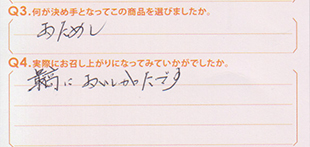 Q3.何が決め手となってこの商品を選びましたか。
おためし
Q4.実際にお召し上がりになってみていかがでしたか。
最高においしかったです